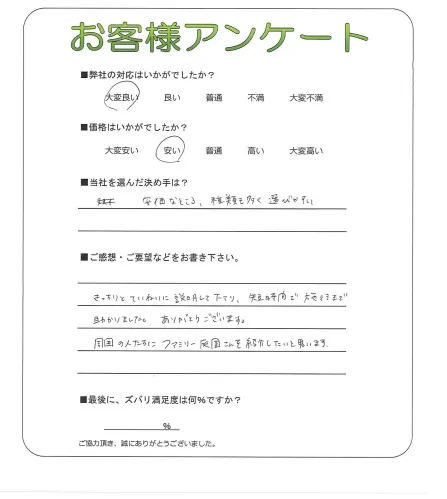 お客様アンケート
■弊社の対応はいかがでしたか？
大変良い 良い 普通 不満 大変不満
■価格はいかがでしたか？
大変安い 安い 普通 高い 大変高い
■当社を選んだ決め手は？
安価なところ、種類も多く選びやすい
■ご感想・ご要望などをお書き下さい。
きっちりとていねいに説明して下さり、短時間で
助かりました。 ありがとうございます。
周囲の人たちに ファミリー庭園さんを紹介したいと思います
■最後に、ズバリ満足度は何%ですか？
%
ご協力頂き、誠にありがとうございました。